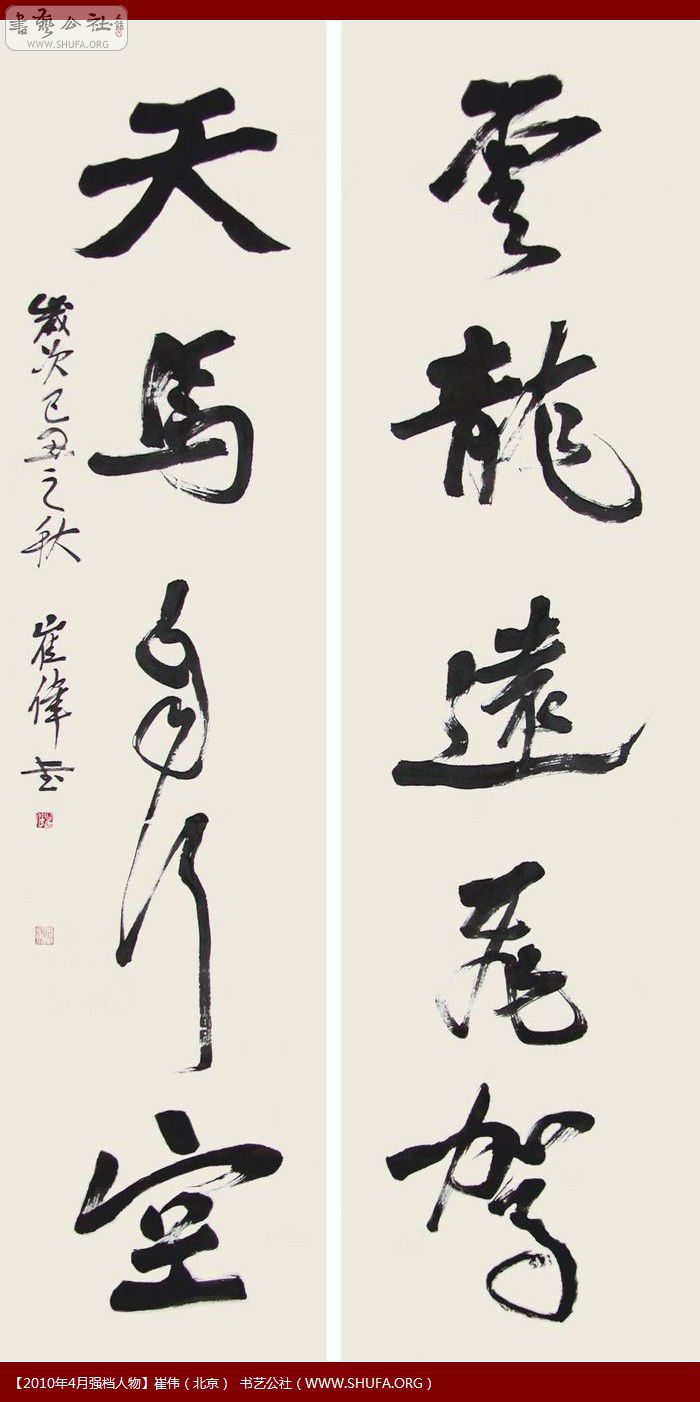 書藝公社
WWW.SHUFA.ORG
雲龍遠飛駕
天馬自行空
歲次己丑之秋 崔偉書
【2010年4月强档人物】崔伟（北京） 书艺公社（WWW.SHUFA.ORG）